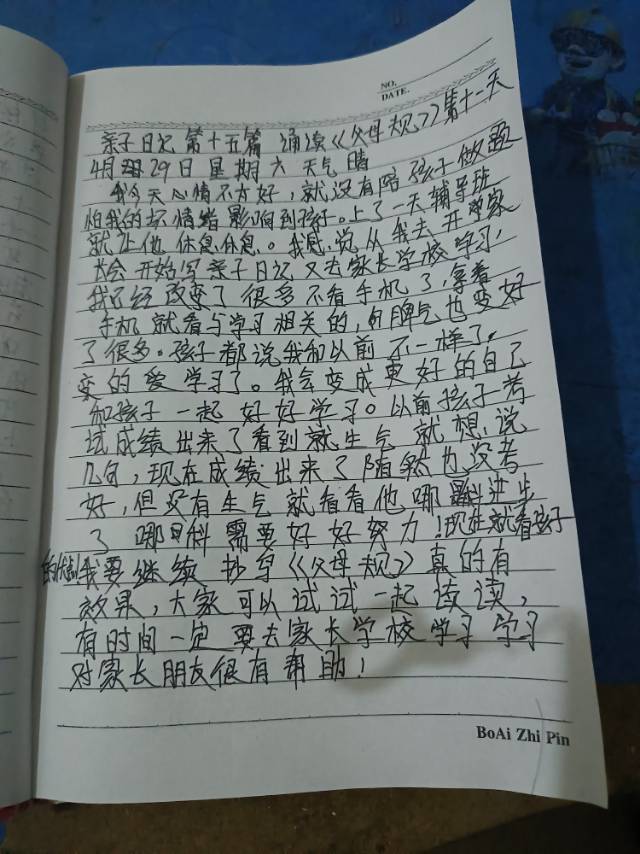 NO.
DATE.
亲子日记 第十五篇 诵读《父母规》第十一天
4月29日 星期六 天气晴
我今天心情不太好，就没有陪孩子做题
怕我的坏情绪影响到孩子。上了一天辅导班
就让他休息休息。我感说从我去开家
大会开始写亲子日记又去家长学校学习，
我已经改变了很多不看手机了，拿着
手机就看与学习相关的，脾气也变好
了很多。孩子都说我和以前不一样了。
变的爱学习了。我会变成更好的自己
和孩子一起好好学习。以前孩子考
试成绩出来了看到就生气就想说
几句，现在成绩出来了虽然也没考
好，但没有生气就看看他哪科进步
了哪科需要好好努力！现在就看孩子
的优点我要继续抄写《父母规》真的有
效果，大家可以试试一起读读，
有时间一定要去家长学校学习学习
对家长朋友很有帮助！
BoAi Zhi Pin